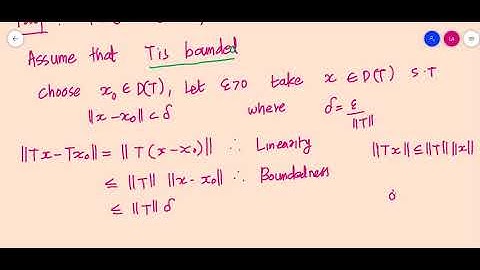 Assume that T is bounded
choose x₀ ∈ D(T), Let ε>0 take x ∈ D(T) s.t
‖x-x₀‖ < δ where δ = ε/‖T‖
‖Tx-Tx₀‖ = ‖T(x-x₀)‖ ∴ Linearity ‖Tx‖ ≤ ‖T‖ ‖x‖
≤ ‖T‖ ‖x-x₀‖ ∴ Boundedness
≤ ‖T‖ δ